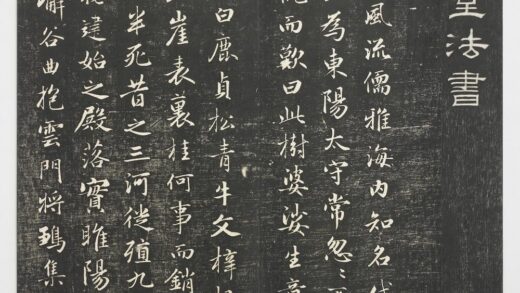 法書
風流儒雅海內知名
為東陽太守常忽〻
而歎曰此樹婆娑生意
白鹿貞松青牛文梓
崖表裏桂何事而銷
半死昔之三河徙殖九
建始之殿落實睢陽
嶰谷曲抱雲門將鶵集